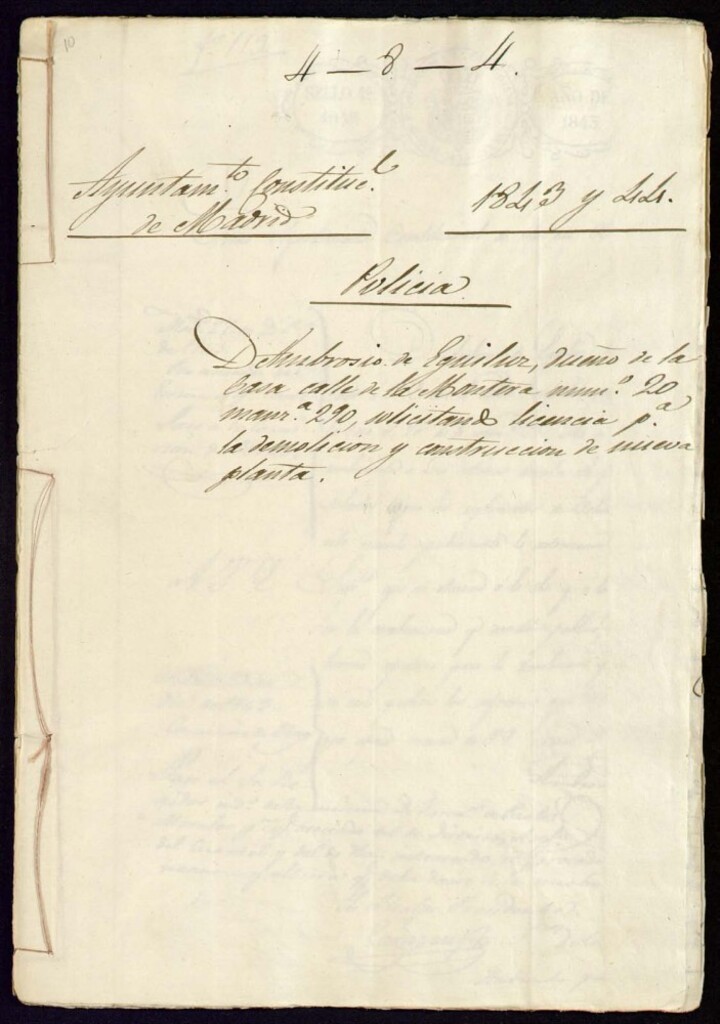 10
4 - 8 - 4.
Ayuntam.to Constituc.l
de Madrid
1843 y 44.
Policia
D. Ambrosio de Eguiluz, dueño de la
Casa calle de la Montera num.o 20
manz.a 290, solicitando licencia p.a
la demolicion y construccion de nueva
planta.